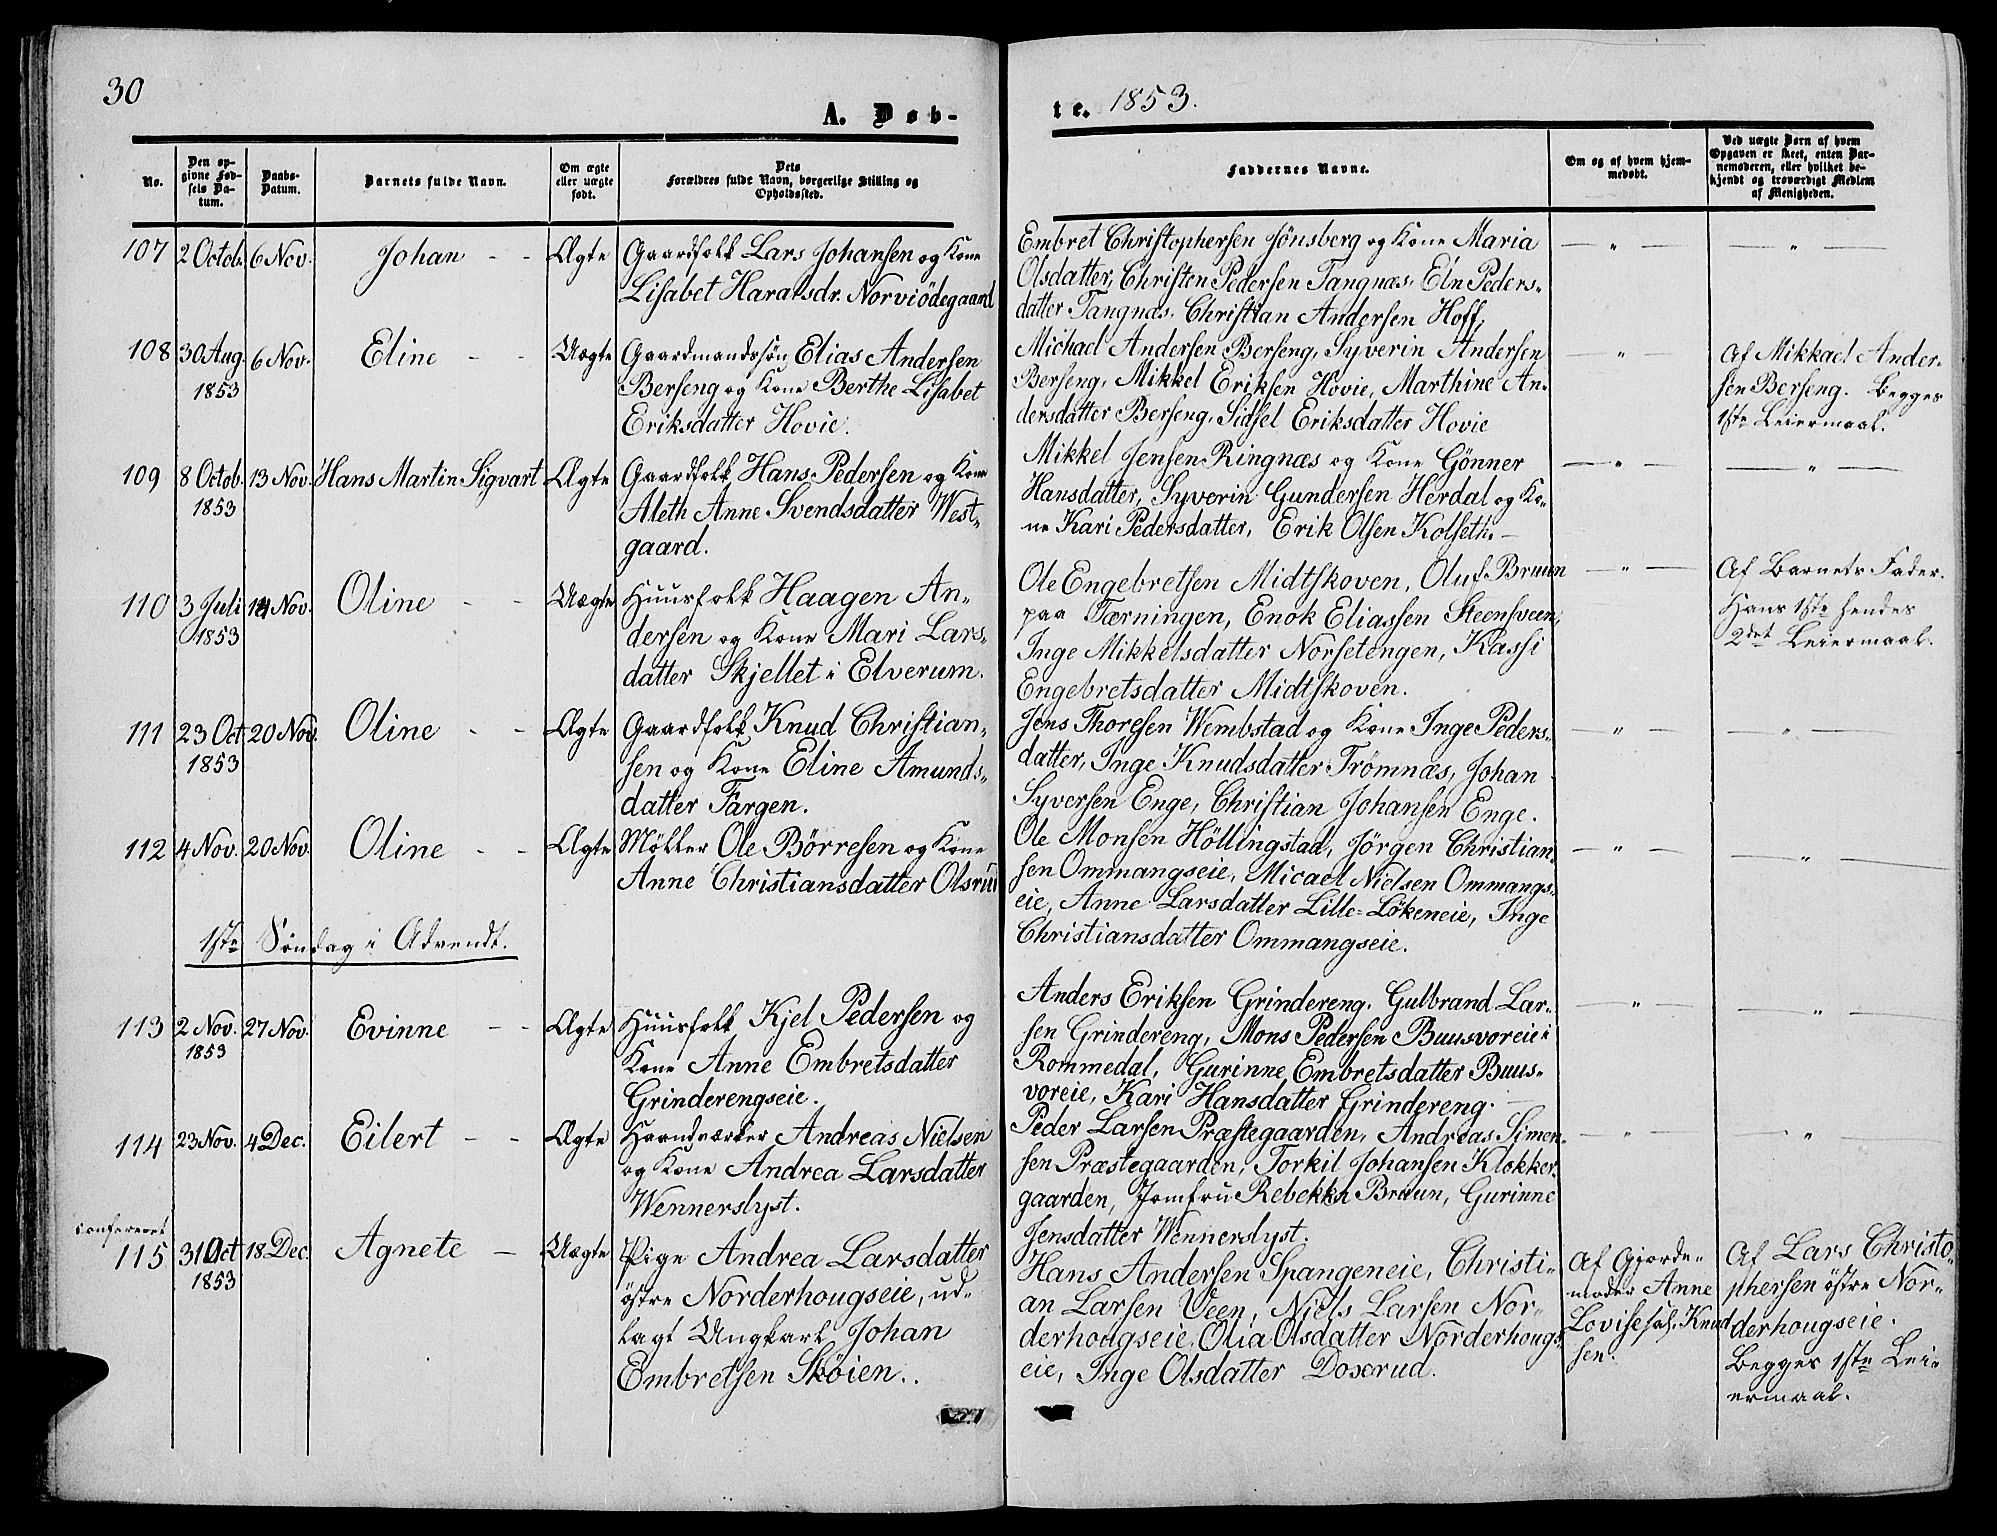 30
A. Døb-
No.
Den op-
givne Fød-
sels Da-
tum.
Daabs-
Datum.
Barnets fulde Navn.
Om ægte
eller uægte
født.
Dets
Forældres fulde Navn, borgerlige Stilling og
Opholdssted.
107 2 Octob. 6 Nov. Johan - - Ægte Gaardfolk Lars Johansen og Kone
Lisabet Haralsdr. Norviødegaard
108 30 Aug. 6 Nov. Eline - - Uægte Gaardmandssøn Elias Andersen
1853 Berseng og Kone Berthe Lisabet
Eriksdatter Hovie.
109 8 Octob. 13 Nov. Hans Martin Sigvart Ægte Gaardfolk Hans Pedersen og Kone
1853 Aleth Anne Svendsdatter West-
gaard.
110 3 Juli 14 Nov. Oline - - Uægte Huusfolk Haagen An-
1853 dersen og Kone Mari Lars-
datter Skjellet i Elverum.
111 23 Oct 20 Nov. Oline - - Ægte Gaardfolk Knud Christian-
1853 sen og Kone Eline Amunds-
datter Fargen.
112 4 Nov. 20 Nov. Oline - - Ægte Møller Ole Börresen og Kone
Anne Christiansdatter Olsrud
1ste Søndag i Advendt.
113 2 Nov. 27 Nov. Evinne - - Ægte Huusfolk Kjel Pedersen og
1853 Kone Anne Embretsdatter
Grinderengseie.
114 23 Nov. 4 Dec. Eilert - - Ægte Haandværker Andreas Nielsen
og Kone Andrea Larsdatter
Wennerslyst.
confereret
115 31 Oct 18 Dec. Agnete - Uægte Pige Andrea Larsdatter
1853 östre Norderhougseie, ud-
lagt Ungkarl Johan
Embretsen Sköien.
te. 1853.
Faddernes Navne.
Om og af hvem hjem-
medøbt.
Ved uægte Børn af hvem
Opgaven er skeet, enten Bar-
nemoderen, eller hvilket be-
kjendt og troværdigt Medlem
af Menigheden.
Embret Christophersen Jönsberg og Kone Maria — " — — " —
Olsdatter, Christen Pedersen Tangnæs. Eln Peders-
datter Tangnæs. Christian Andersen Hoff.
Michael Andersen Berseng, Syverin Andersen — " — Af Mikkael Ander-
Berseng, Mikkel Eriksen Hovie, Marthine An- sen Berseng. Begges
dersdatter Berseng, Sidsel Eriksdatter Hovie 1ste Leiermaal.
Mikkel Jensen Ringnæs og Kone Gönner — " — — " —
Hansdatter, Syverin Gundersen Herdal og Ko-
ne Kari Pedersdatter, Erik Olsen Kolseth. -
Ole Engebretsen Midtskoven, Oluf Bruun — " — Af Barnets Fader.
paa Tærningen, Enok Eliassen Steensveen, Hans 1ste hendes
Inge Mikkelsdatter Norsetengen, Kassi 2det Leiermaal.
Engebretsdatter Midtskoven.
Jens Thoresen Wembstad og Kone Inge Peders- — " — — " —
datter, Inge Knudsdatter Trömnæs, Johan
Syversen Enge, Christian Johansen Enge.
Ole Monsen Höllingstad, Jörgen Christian- — " — — " —
sen Ommangseie, Micael Nielsen Ommangs-
eie, Anne Larsdatter Lille-Lökeneie, Inge
Christiansdatter Ommangseie.
Anders Eriksen Grindereng. Gulbrand Lar- — " — — " —
sen Grindereng, Mons Pedersen Buusvoreie i
Rommedal, Gurinne Embretsdatter Buus-
voreie, Kari Hansdatter Grindereng.
Peder Larsen Præstegaarden, Andreas Simen- — " — — " —
sen Præstegaarden, Torkil Johansen Klokker-
gaarden, Jomfru Rebekka Bruun, Gurinne
Jensdatter Wennerslyst.
Hans Andersen Spangeneie, Christi- Af Gjorde- Af Lars Christo-
an Larsen Veen, Niels Larsen Nor- moder Anne phersen östre Nor-
derhougseie, Olia Olsdatter Norderhougs- Lovise Knud- derhougseie.
eie, Inge Olsdatter Doxrud. sen. Begges 1ste Lei-
ermaal.